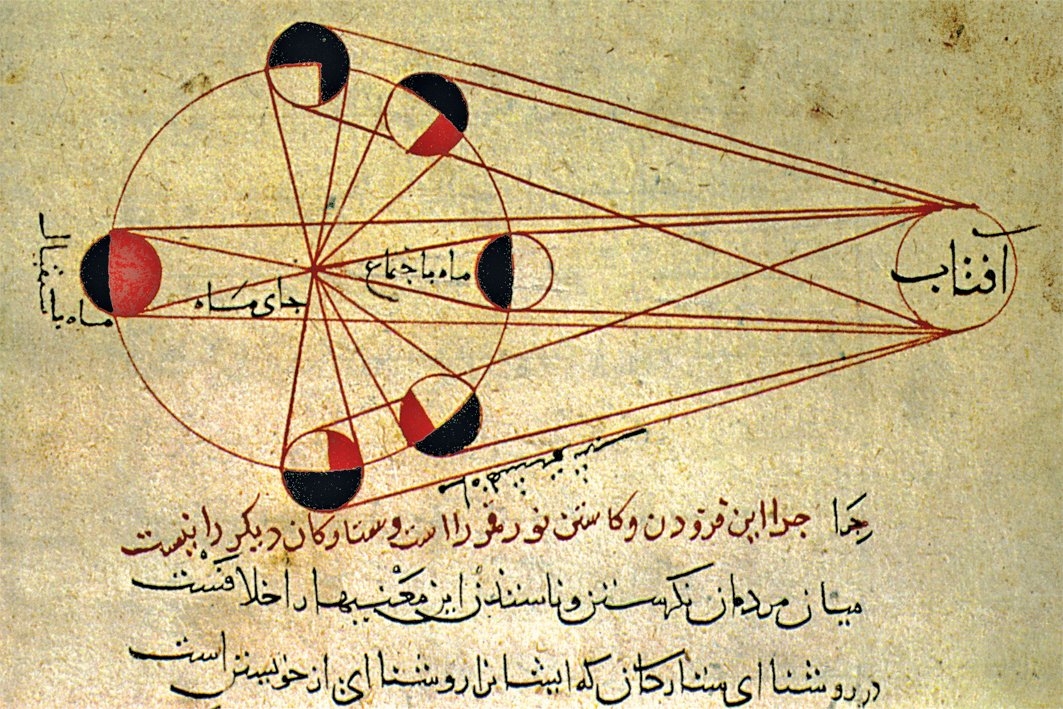 آفتاب
ماه باجتماع
جای ماه
ماه باستقبال
جرا جرا این فزودن وکاستن نور قمر را است وستارکان دیکر را نیست
میان مردمان این معنیها را خلافست
در روشنا ای ستارکان که ایشانرا روشنا ای از خویشتن است